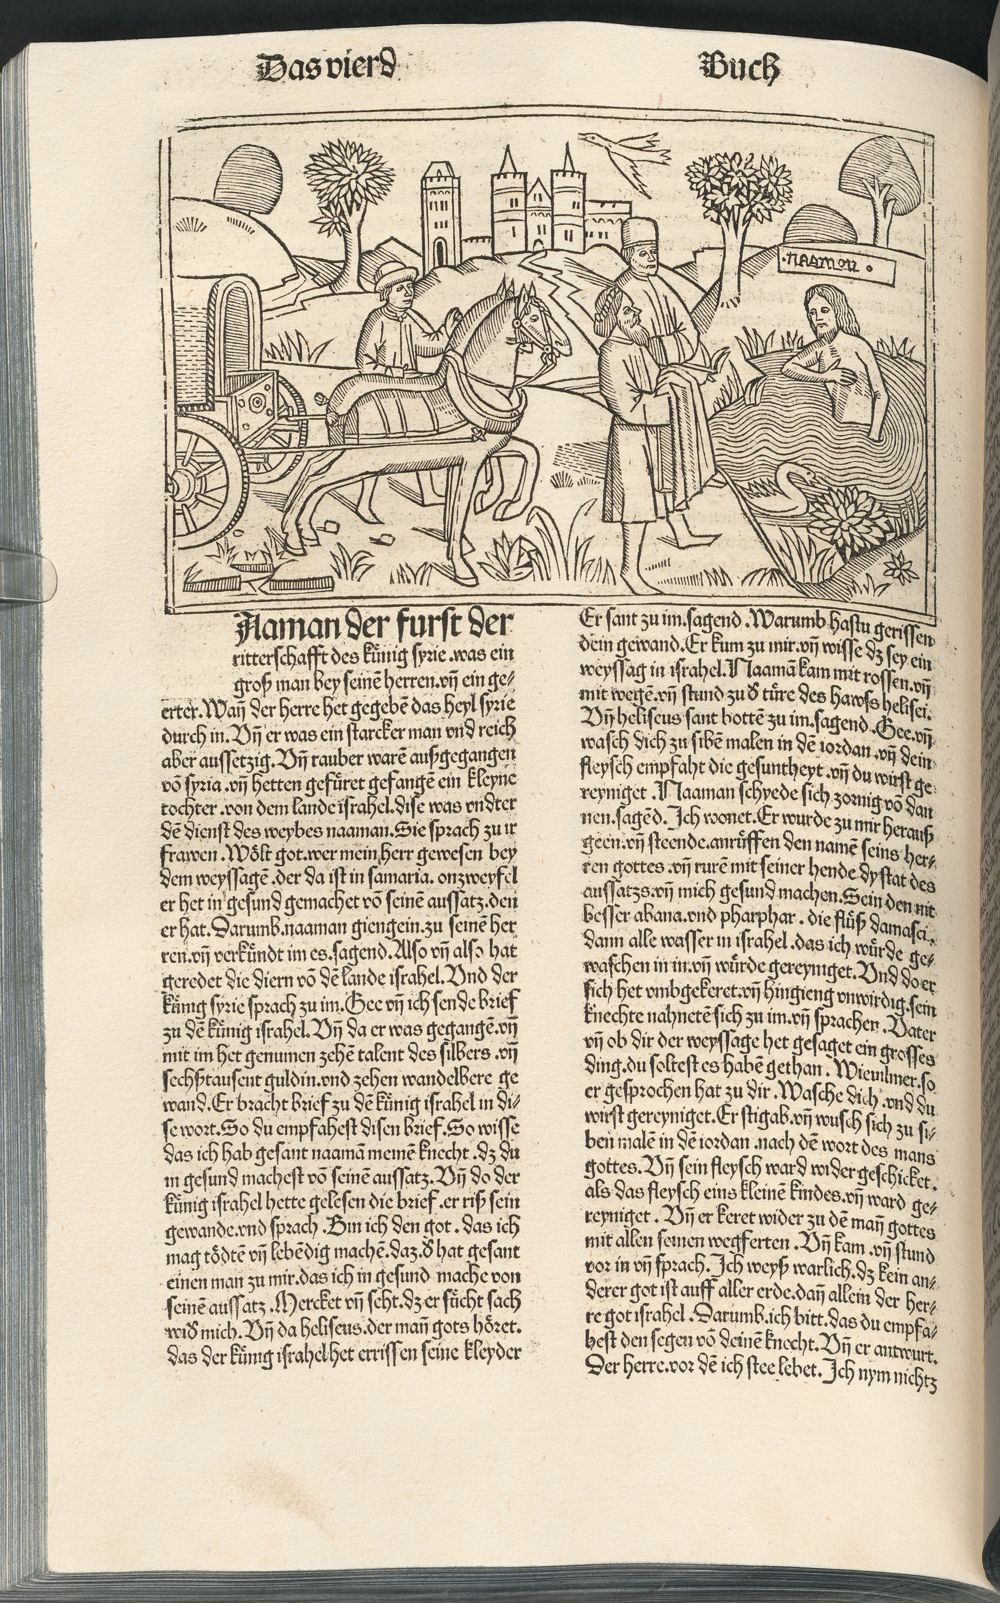 Das vierd Buch
·NAAMON·
Naman der furst der
ritterschafft des künig syrie .was ein
groß man bey seinē herren.vn̄ ein ge⸗
erter.Wan̄ der herre het gegebē das heyl syrie
durch in. Vn̄ er was ein starcker man vnd reich
aber aussetzig. Vn̄ rauber warē außgegangen
vō syria .vn̄ hetten gefüret gefangē ein kleyne
tochter .von dem lande israhel.dise was vndter
dē dienst des weybes naaman.Sie sprach zu ir
frawen .Wölt got.wer mein herr gewesen bey
dem weyssagē .der da ist in samaria. onzweyfel
er het in gesund gemachet vō seinē aussatz.den
er hat. Darumb.naaman gieng ein.zu seinē her
ren.vn̄ verkündt im es.sagend.Also vn̄ also hat
geredet die diern vō dē lande israhel. Vnd der
künig syrie sprach zu im.Gee vn̄ ich sende brief
zu dē künig israhel. Vn̄ da er was gegangē.vn̄
mit im het genumen zehē talent des silbers .vn̄
sechßtausent guldin.vnd zehen wandelbere ge
wand.Er bracht brief zu dē künig israhel in di⸗
se wort.So du empfahest disen brief.So wisse
das ich hab gesant naamā meinē knecht .dz du
in gesund machest vō seinē aussatz. Vn̄ do der
künig israhel hette gelesen die brief.er riß sein
gewande.vnd sprach .Bin ich den got . das ich
mag tödtē vn̄ lebēdig machē.daz.d' hat gesant
einen man zu mir.das ich in gesund mache von
seinē aussatz .Mercket vn̄ seht.dz er sücht sach
wid' mich. Vn̄ da heliseus.der man̄ gots höret.
das der künig israhel het errissen seine kleyder
Er sant zu im.sagend .Warumb hastu gerissen
dein gewand.Er kum zu mir.vn̄ wisse dz sey ein
weyssag in israhel.Naamā kam mit rossen.vn̄
mit wegē.vn̄ stund zu d' türe des hawss helisei.
Vn̄ heliseus sant bottē zu im.sagend .Gee.vn̄
wasch dich zu sibē malen in dē iordan .vn̄ dein
fleysch empfaht die gesuntheyt .vn̄ du wirst ge⸗
reyniget .Naaman schyede sich zornig vō dan
nen.sagēd. Ich wonet.Er wurde zu mir herauß
geen.vn̄ steende.anrüffen den namē seins her⸗
ren gottes .vn̄ rurē mit seiner hende dy stat des
aussatzs.vn̄ mich gesund machen.Sein den nit
besser abana.vnd pharphar . die flüß damasci.
dann alle wasser in israhel .das ich würde ge⸗
waschen in in.vn̄ würde gereyniget. Vnd do er
sich het vmbgekeret.vn̄ hingieng vnwirdig.sein
knechte nahnetē sich zu im.vn̄ sprachen .Vater
vn̄ ob dir der weyssage het gesaget ein grosses
ding.du soltest es habē gethan . Wievilmer.so
er gesprochen hat zu dir .Wasche dich .vnd du
wirst gereyniget.Er stigab.vn̄ wusch sich zu si⸗
ben malē in dē iordan .nach dē wort des mans
gottes. Vn̄ sein fleysch ward wider geschicket.
als das fleysch eins kleinē kindes.vn̄ ward ge⸗
reyniget . Vn̄ er keret wider zu dē man̄ gottes
mit allen seinen wegferten . Vn̄ kam .vn̄ stund
vor in vn̄ sprach. Ich weyß warlich.dz kein an⸗
derer got ist auff aller erde.dan̄ allein der her⸗
re got israhel .Darumb.ich bitt.das du empfa⸗
hest den segen vō deinē knecht. Vn̄ er antwurt.
Der herre.vor dē ich stee lebet. Ich nym nichtz